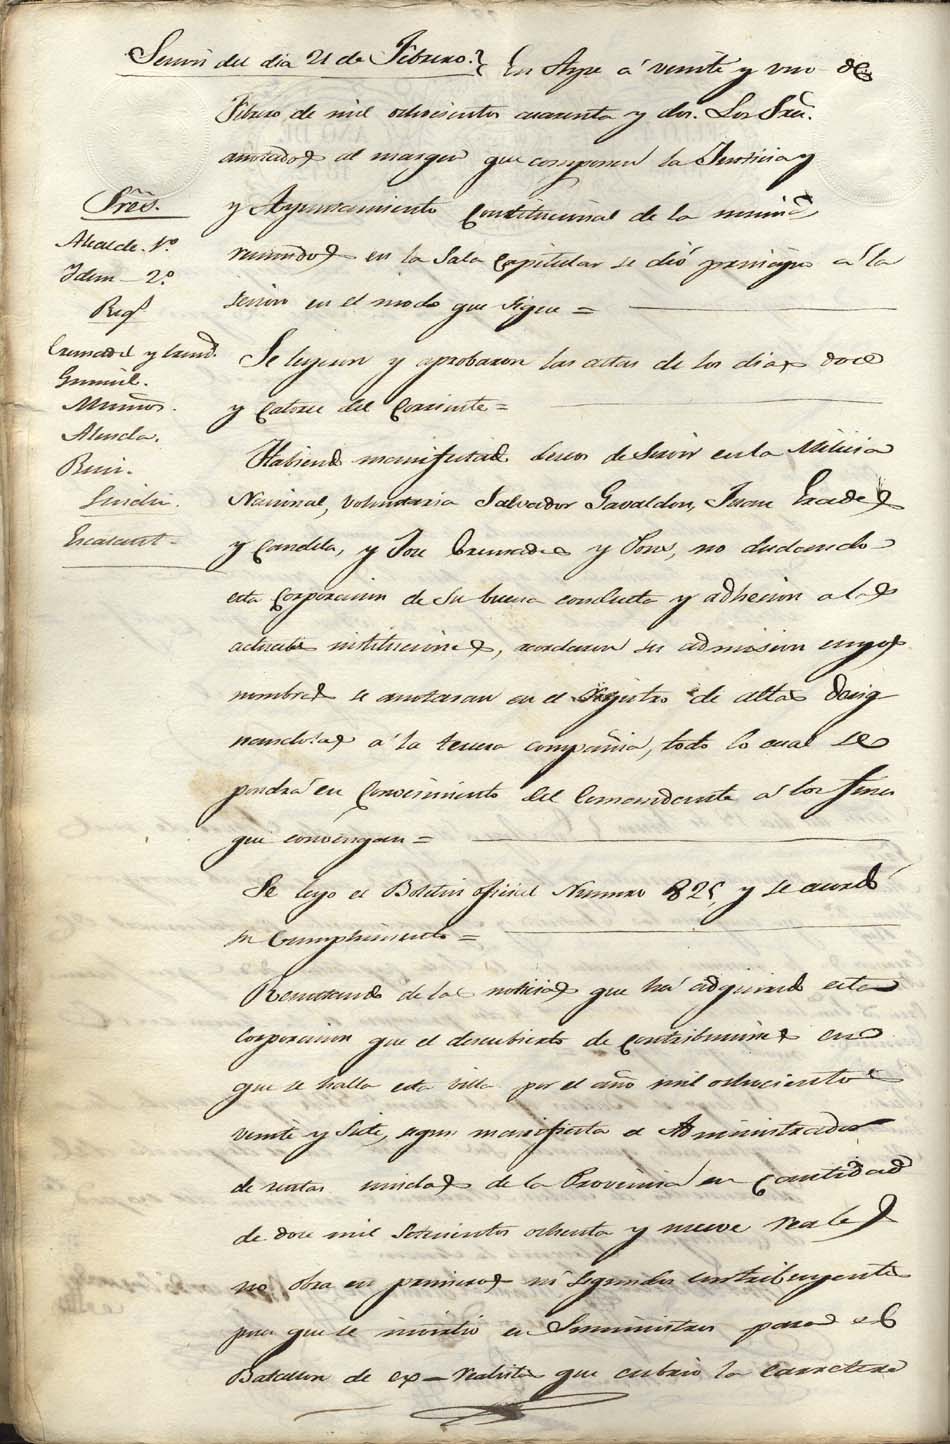 Sesion del dia 21 de Febrero. En Aspe á veinte y uno de
Febrero de mil ochocientos cuarenta y dos. Los Sres.
anotados al margen que componen la Justicia y
y Ayuntamiento Constitucional de la misma
reunidos en la Sala Capitular se dió principio á la
sesion en el modo que sigue =
Sres.
Alcalde. 1º
Idem - 2º
Regs
Cremades y
Gumiel.
Muños.
Almela.
Sindic.
Se leyeron y aprobaron las actas de los dias doce
y catorce del corriente =
Habiendo manifestado deseos de Servir en la Milicia
Nacional, voluntaria Salvador Gavaldon, Juan Prades
y Candela, y Jose Cremades y, no dudando
esta Corporacion de su buena conducta y adhesion a las
actuales instituciones, acordaron su admision cuyos
nombres se anotaran en el Registro de altas desig
nandolas á la tercera compañia, todo lo cual se
pondrá en Conocimiento del Comandante á los fines
que convengan =
Se leyo el Boletin oficial Numero 825, y se acordó
su Cumplimiento =
de las noticias que ha adquirido esta
Corporacion que el descubierto de Contribuciones en
que se halla esta villa por el año mil ochocientos
veinte y siete, segun manifiesta el Administrador
de rentas unidas de la Provincia en Cantidad
de doce mil setecientos ochenta y nueve reales
no obra en primeros ni segundos contribuyentes
pues que se invirtio en Suministros para el
Batallon de ex-realistas que cubrio la carretera